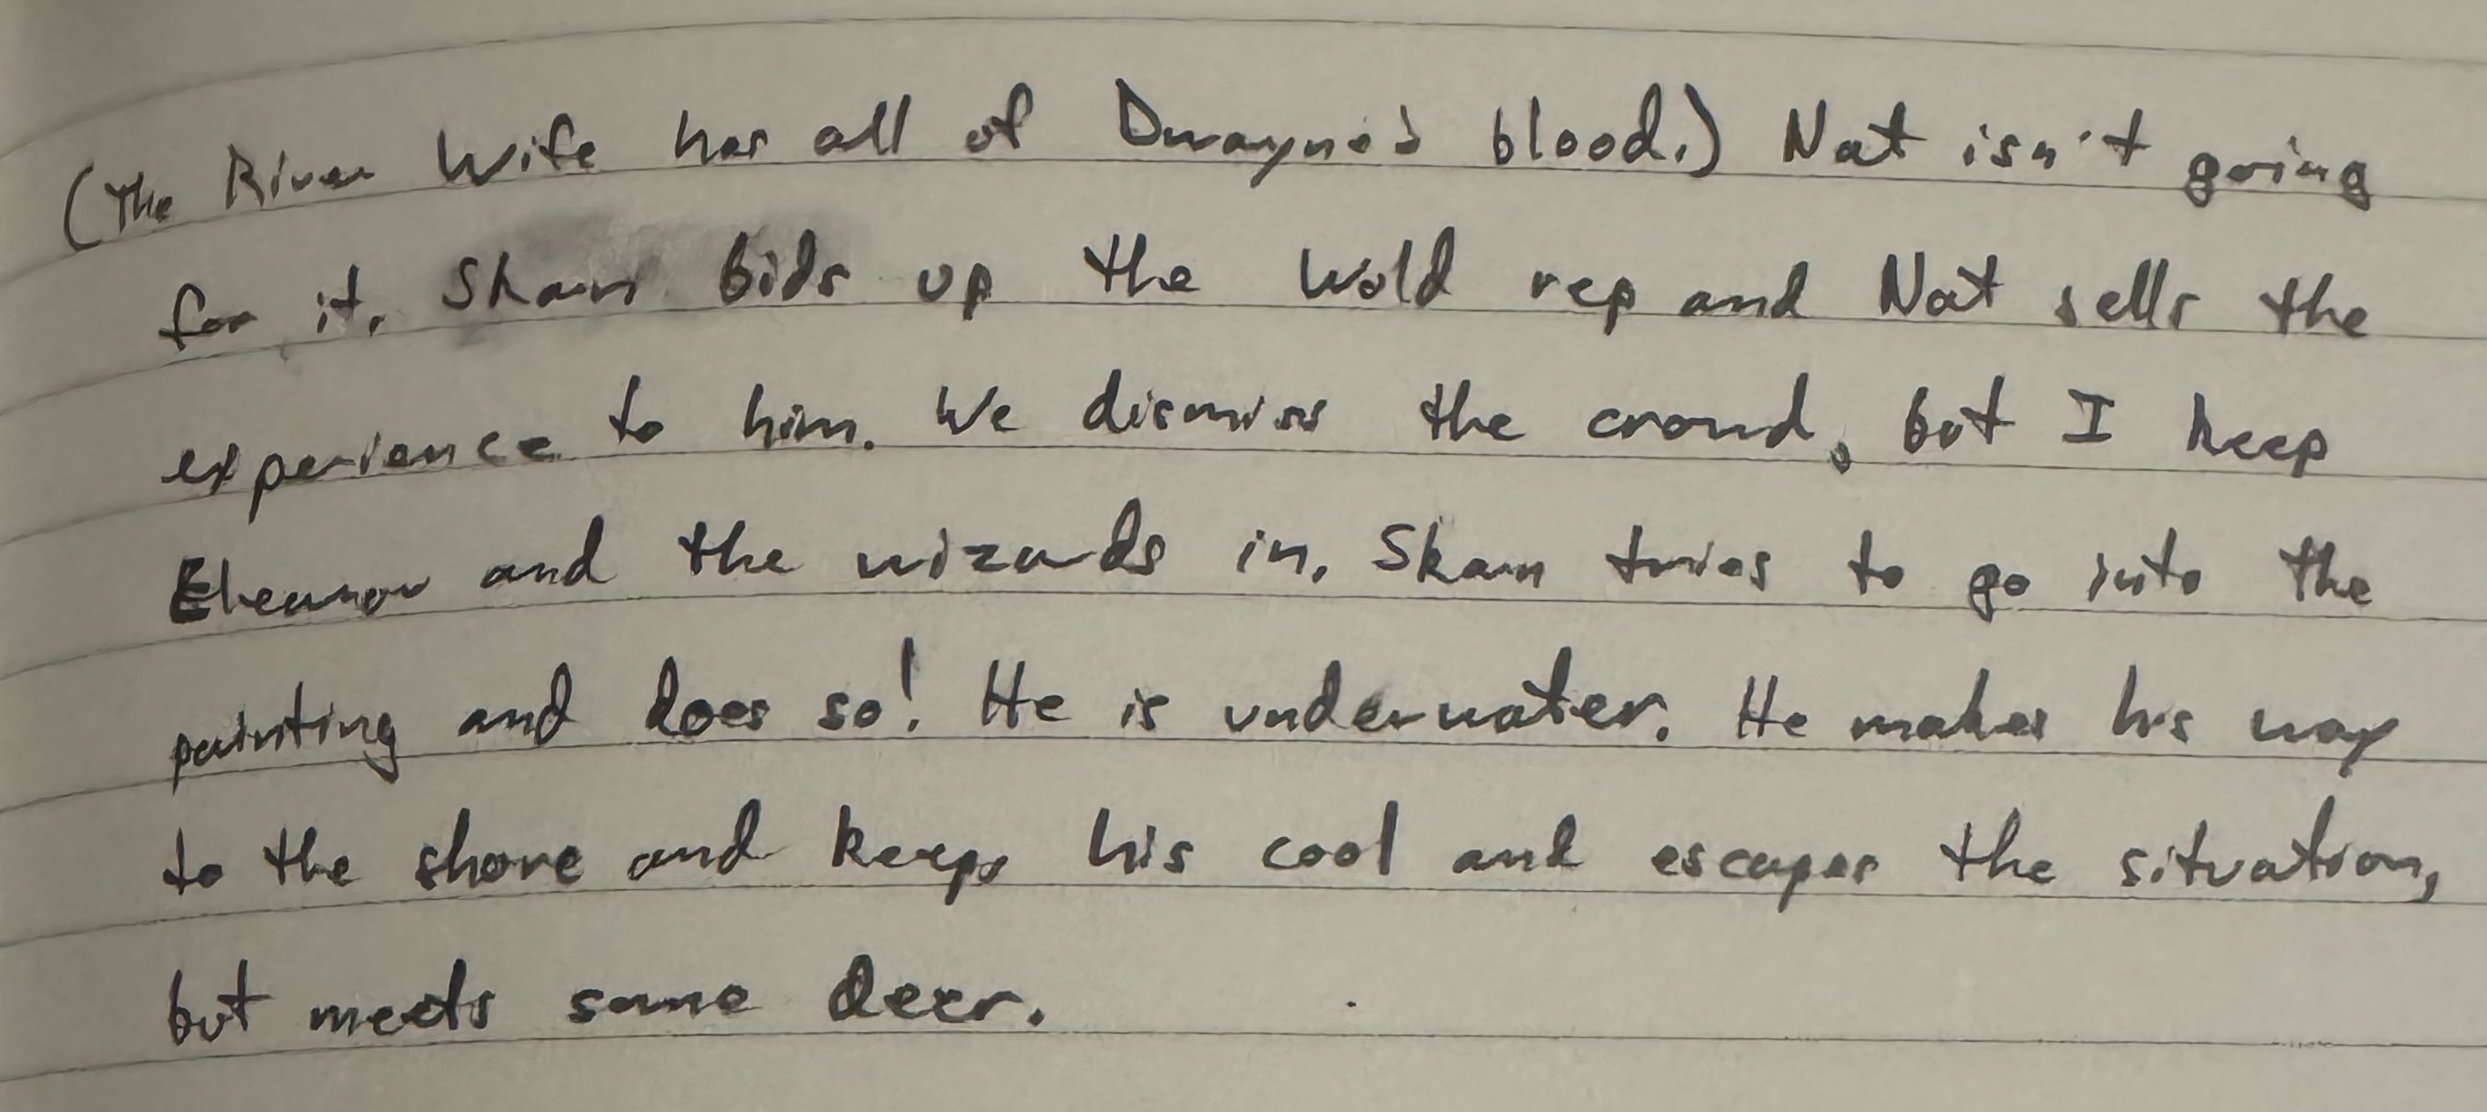 (The River Wife has all of Dwayne's blood.) Nat isn't going
for it. Skam bids up the Wold rep and Nat sells the
experience to him. We dismiss the crowd, but I keep
Eleanor and the wizards in. Skam tries to go into the
painting and does so! He is underwater. He makes his way
to the shore and keeps his cool and escapes the situation,
but meets some deer.